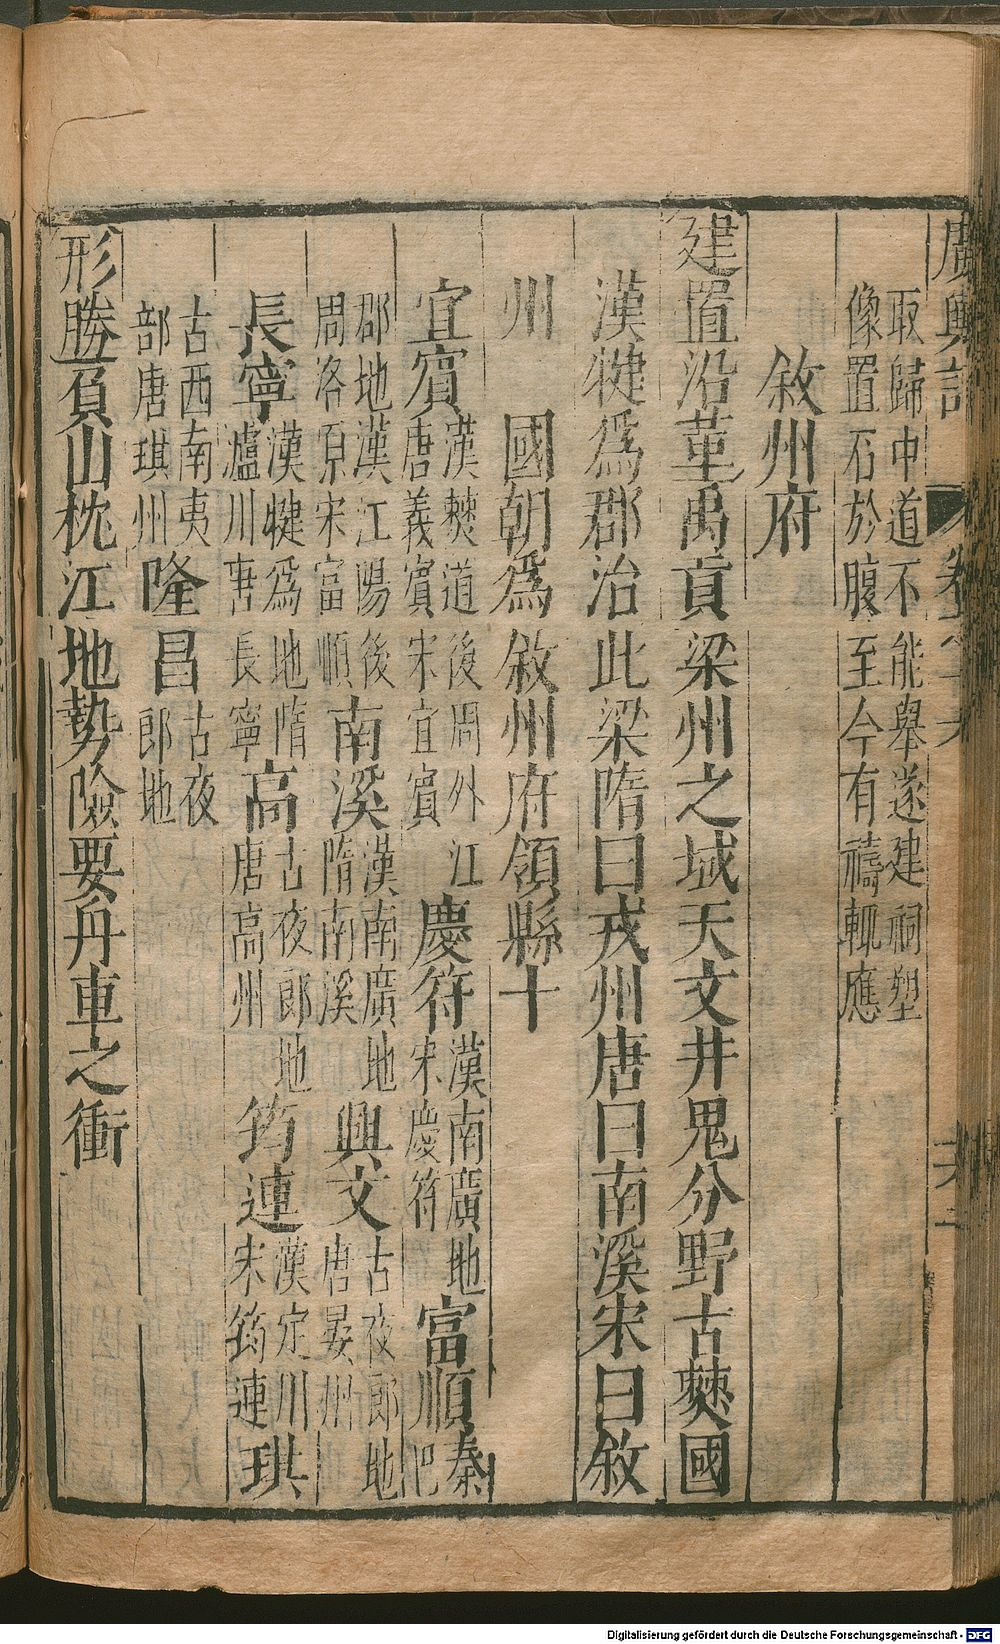 廣輿記
卷之十六
取歸中道不能舉遂建祠塑
像置石於腹至今有禱輒應
敘州府
建置沿革禹貢梁州之域天文井鬼分野古僰國
漢犍為郡治此梁隋曰戎州唐曰南溪宋曰敘
州 國朝為敘州府領縣十
宜賓漢僰道後周外江唐義賓宋宜賓慶符漢南廣地宋慶符富順秦巴
郡地漢江陽後周洛原宋富順南溪漢南廣地隋南溪興文古夜郎地唐晏州
長寧漢犍為地隋瀘川唐長寧高古夜郎地唐高州筠連漢定川宋筠連珙
古西南夷部唐珙州隆昌古夜郎地
形勝負山枕江地勢險要舟車之衝
Digitalisierung gefördert durch die Deutsche Forschungsgemeinschaft - DFG